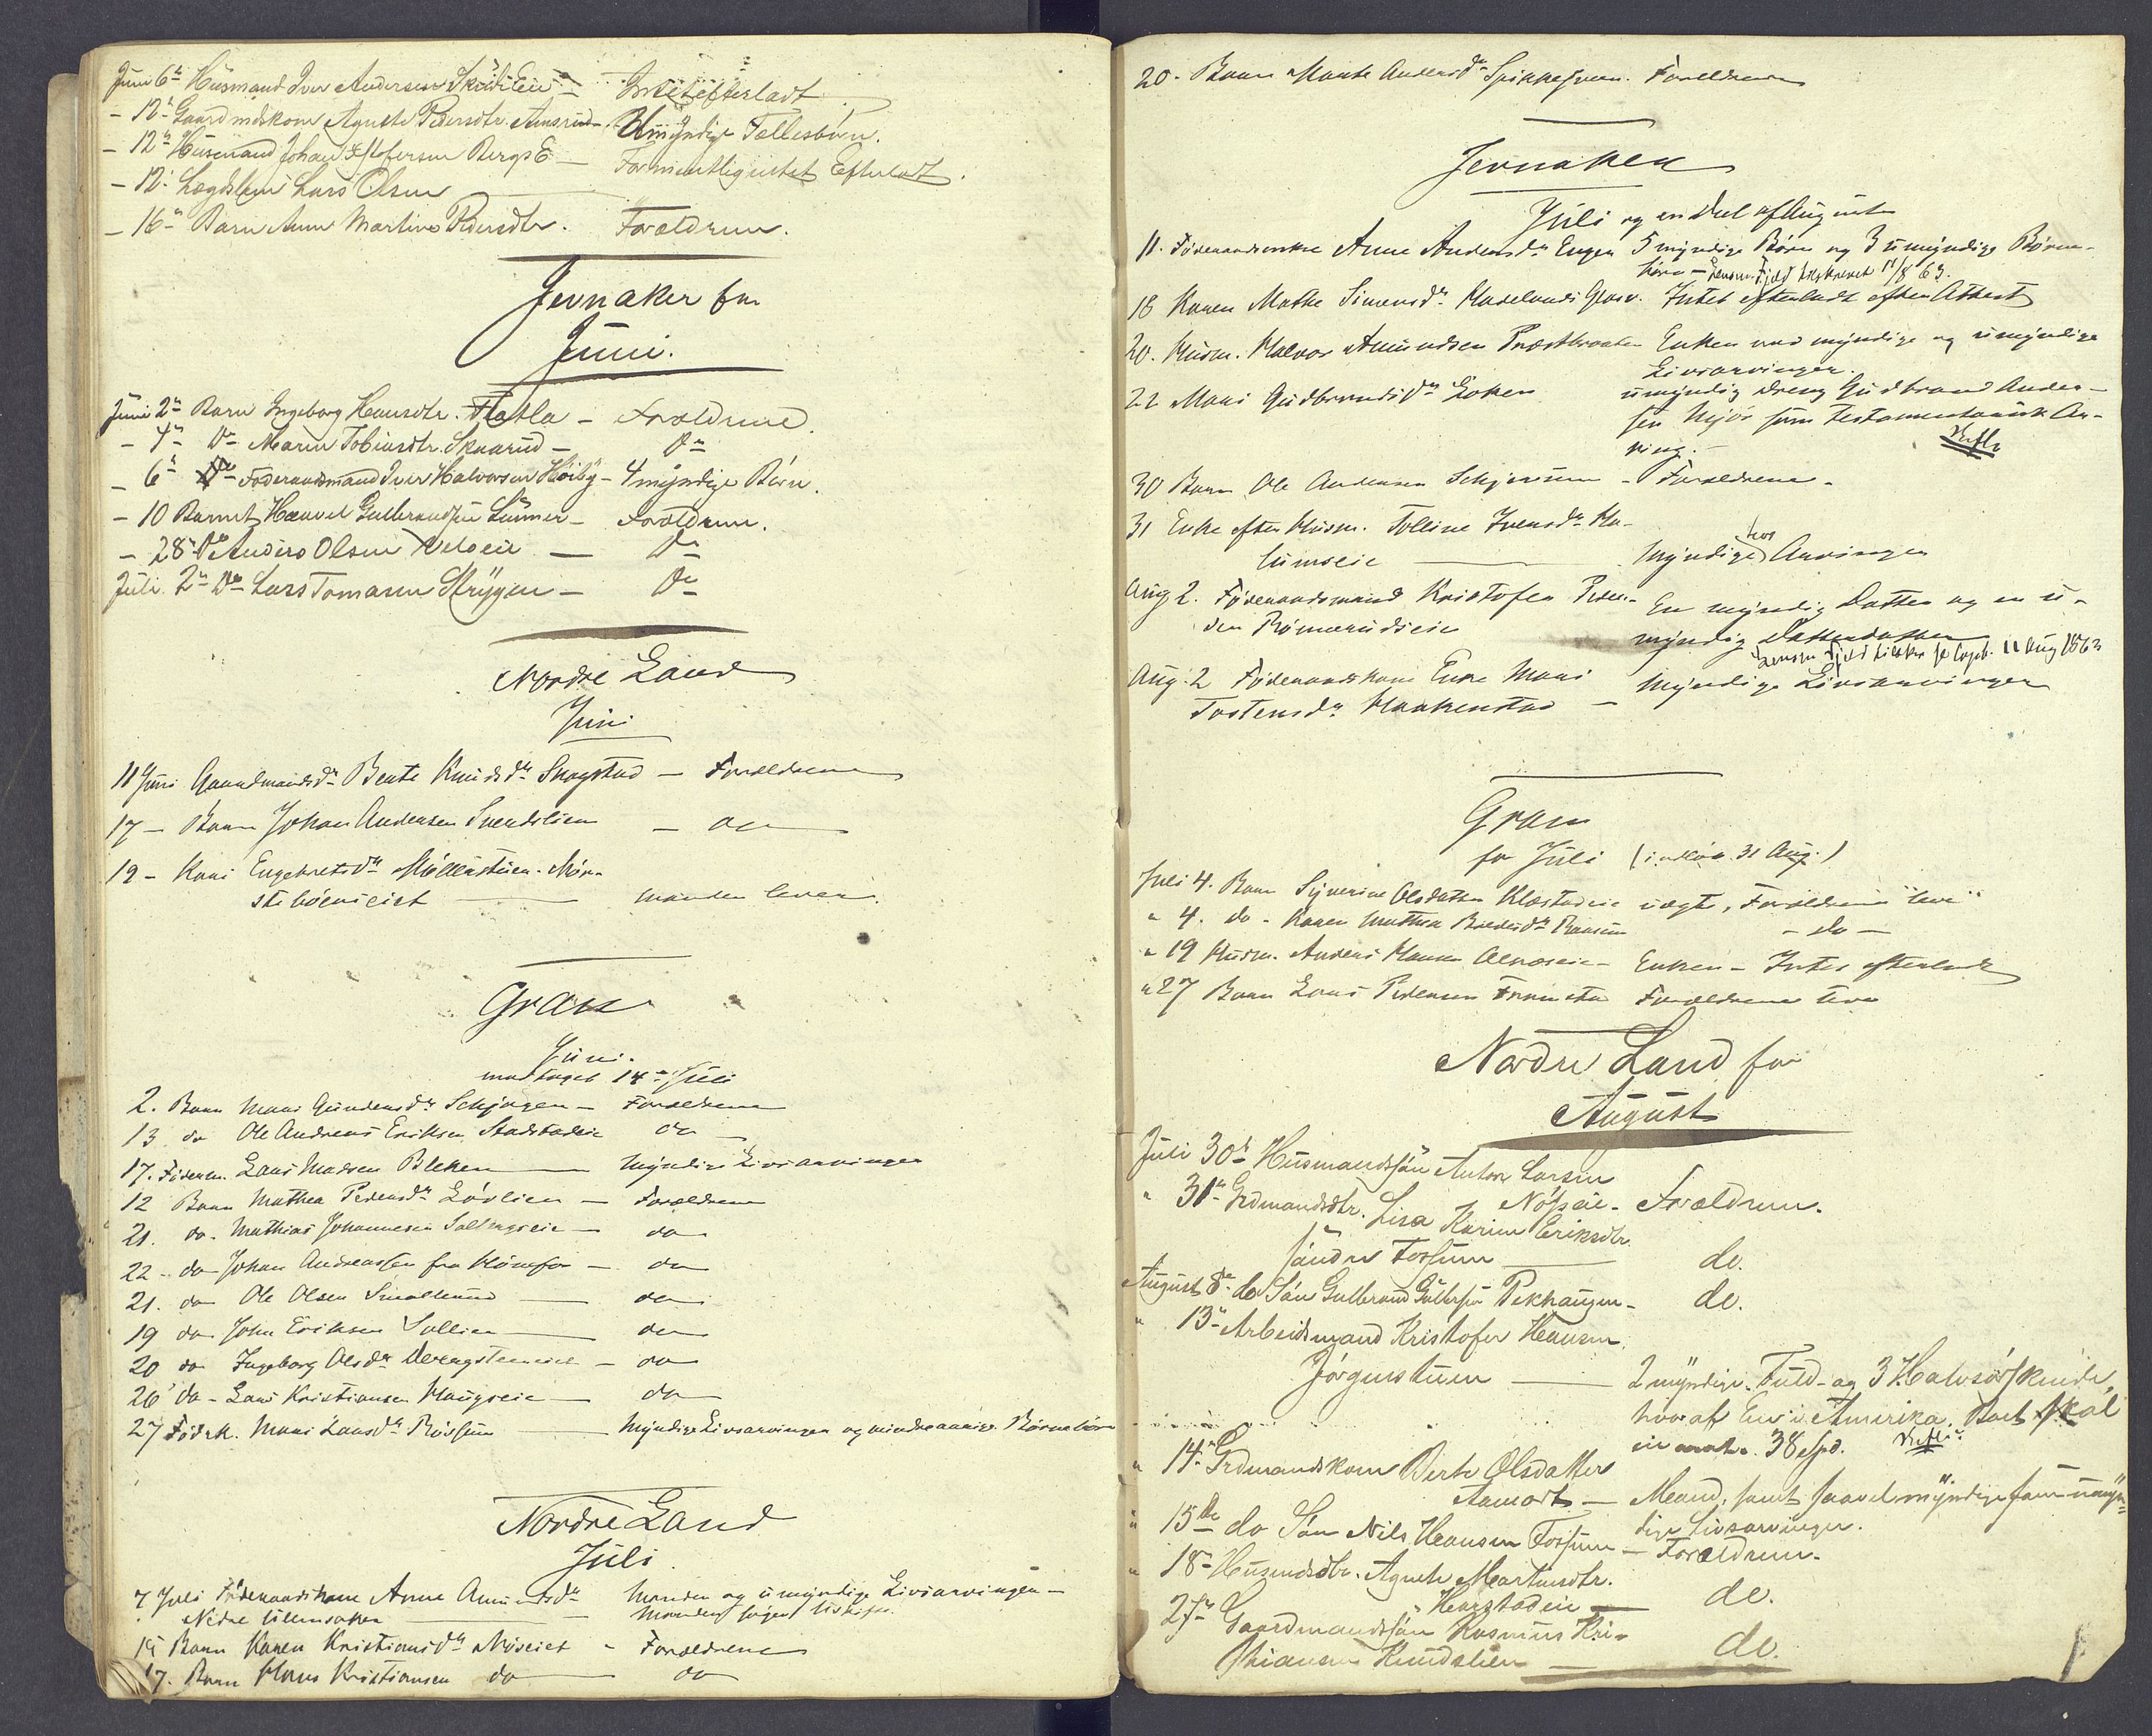 Juni 6te Husmand Iver Andersen SkredEie — Intet efterladt
- 12te Gaardmdskone Agnethe Pedersdtr. Amsrud — Umyndige Fællesbörn.
- 12te Husmand Johan Kristofersen BergsE — Formentlig intet Efterladt.
- 12. Lægdslem Lars Olsen
- 16te Barn Anne Martine Pedersdtr. Forældrene.
Jevnaker for
Juni.
Juni 2den Barn Ingeborg Hansdtr. Flatla — Forældrene.
- 4de Do Maren Tobiasdtr. Skaarud — Do
- 6te Foderaadsmand Iver Halvorsen Höiby — 4 myndige Börn.
- 10 Barnet Haavel Gulbrandsen Sünner — Forældrene.
- 28. Do Anders Olsen — Do
Juli 2den Do Lars Tomasen Strygen — Do
Nordre Land
Juni
11 Juni Gaardmandsdr Beate Knudsdr Skogstad — Forældrene
17 — Barn Johan Andersen Svendslien — do
19 — Kari Engebretsdr Möllerstuen
— manden lever.
Gran
Juni.
modtaget 14de Juli
2. Barn Mari Gundersdr Schjagen — Forældrene
13 do Ole Andreas Eriksen Stadstadeie do
17. Föderm. Lars Madsen Bleken — Myndige Livsarvinger
12 Barn Mathea Pedersdr Lövlien — Forældrene
21. do. Mathias Johannesen Sollangseie — do
22 — do Johan Andreassen fra Hönefos — do
21. do Ole Olsen Smallerud — do
19 do John Eriksen Sollien — do
20 do Ingeborg Olsdr — do
26 do — Lars Kristiansen Haugseie — do
27 Föderk. Mari Larsdr Röisum — Myndige Livsarvinger og mindreaarige Börnebörn
Nordre Land
Juli
7 Juli Föderaadskone Anne Amundsdr Manden og umyndige Livsarvinger —
Nedre Ullensaker — Manden söger Uskifte.
15 Barn Karen Kristiansdr Nöseiet — Forældrene
17. Barn Hans Kristiansen do — do
20. Barn Marte Andersdr Forældrene
Jevnaker
Juli og en Deel af August
11. Föderaadsenke Anne Andersdr Engen 5 myndige Börn og 3 umyndige Börne-
börn — Lensm. Fjeld tilskrevet 11/8 63.
18 Karen Mathe Simensdr Hadelands Glasv. Intet efterladt efter Attest
20. Husm. Halvor Amundsen Præstkværen Enken med myndige og umyndige
Livsarvinger.
22 Mari Gudbrandsdr Loken umyndig Dreng Gudbrand Ander-
sen som testamentarisk Ar-
ving. —
30 Barn Ole Andersen Schjerven — Forældrene.
31 Enke efter Husm. Tolline Iversdr
— Myndige Arvinger
Aug 2. Föderaadsmand Kristofer Peder- En myndig Datter og en u-
sen Römmerudseie myndig Datterdatter
Lensm. Fjeld 11 Aug 1863
Aug. 2 Föderaadskone Enke Mari
Tostensdr Haakenstad — Myndige Livsarvinger
Gran
for Juli (indlöb 31 Aug.)
Juli 4. Barn Syverine Olsdatter Klæstadeie uægte, Forældrene leve
" 4. do. Karen Mathea — do —
" 19 Husm. Anders Hansen — Enken — Intet efterladt
" 27 Barn Lars Pedersen Forældrene leve
Nordre Land for
August
Juli 30te Husmandssön Anton Larsen
Nöss eie. Forældrene.
" 31te Grdmandsdtr. Lisa Karine Eriksdtr.
söndre Fossum — do.
August 8de do Sön Gulbrand Gulbrsen — do.
" 13de Arbeidsmand Kristofer Hansen
Jörgenstuen — 2 myndige. Fuld- og 3 Halvsödskende,
hvoraf En i Amerika. Boet skal
eie ca. 38 Spd.
" 14. Grdmandskone Berte Olsdatter
Aamodt — Mand, samt saavel myndige som umyn-
dige Livsarvinger.
" 15de do Sön Nils Hansen Fossum — Forældrene.
" 18. Husmdsdtr. Agnethe Martinsdtr.
Harstadeie — do.
27de Gaardmandssön Rasmus Kri-
stiansen — do.